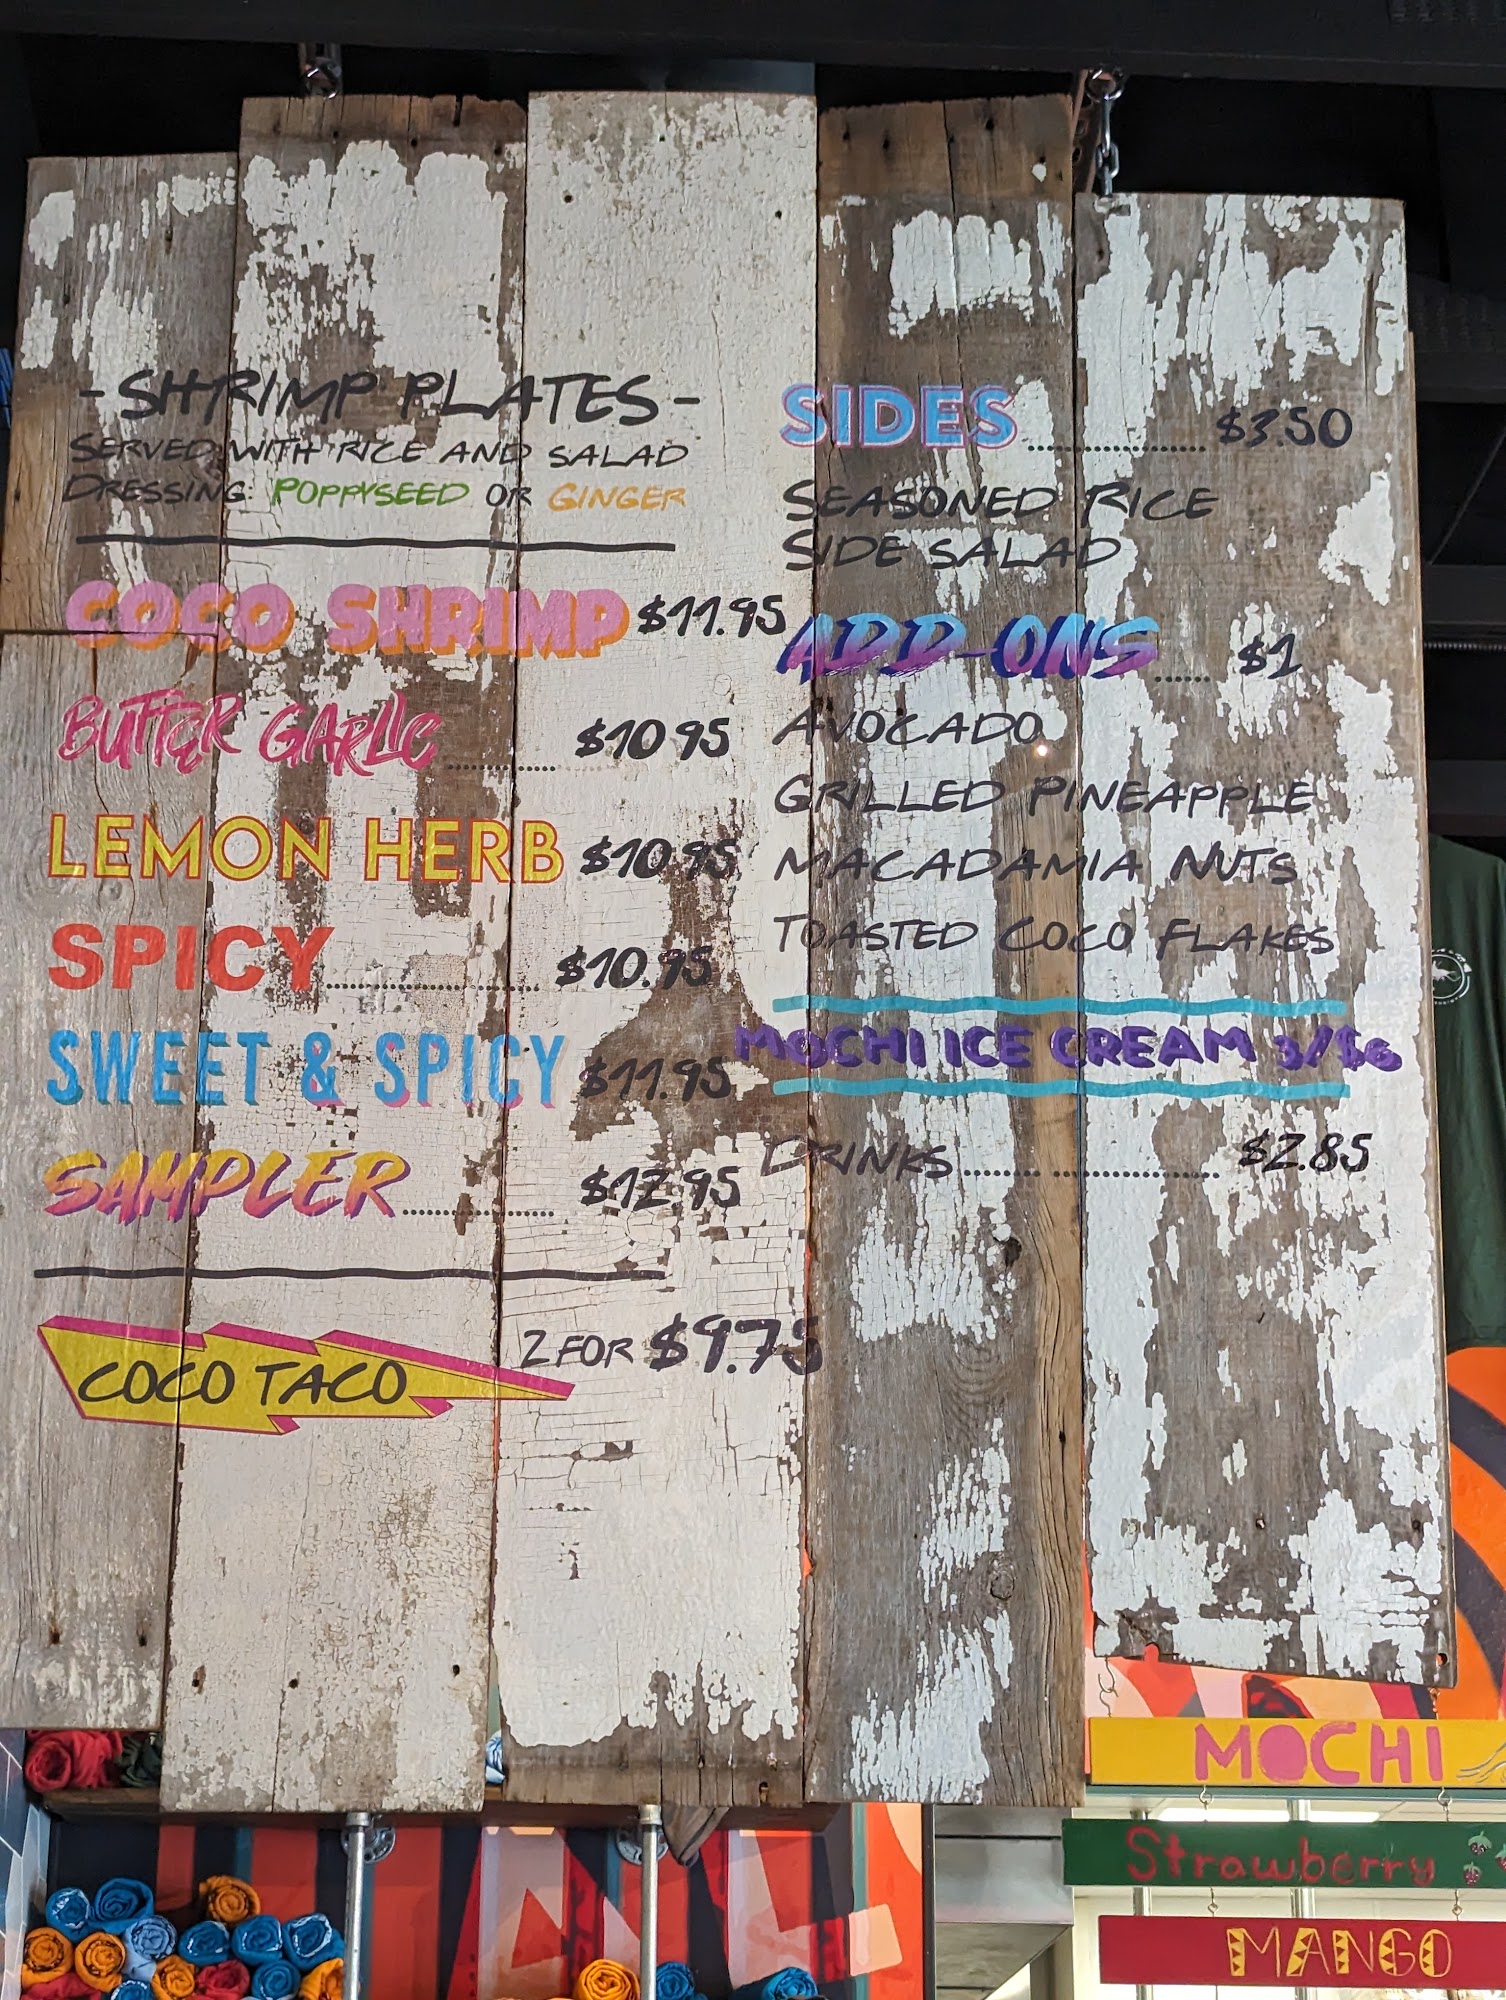 - SHRIMP PLATES -
SERVED WITH RICE AND SALAD
DRESSING: POPPYSEED OR GINGER
COCO SHRIMP $11.95
BUTTER GARLIC ........... $10.95
LEMON HERB $10.95
SPICY ........... $10.95
SWEET & SPICY $11.95
SAMPLER ........... $12.95
COCO TACO 2 FOR $9.75
SIDES ........... $3.50
SEASONED RICE
SIDE SALAD
ADD-ONS ...... $1
AVOCADO
GRILLED PINEAPPLE
MACADAMIA NUTS
TOASTED COCO FLAKES
MOCHI ICE CREAM 3/$6
DRINKS ........... $2.85
MOCHI
Strawberry
MANGO